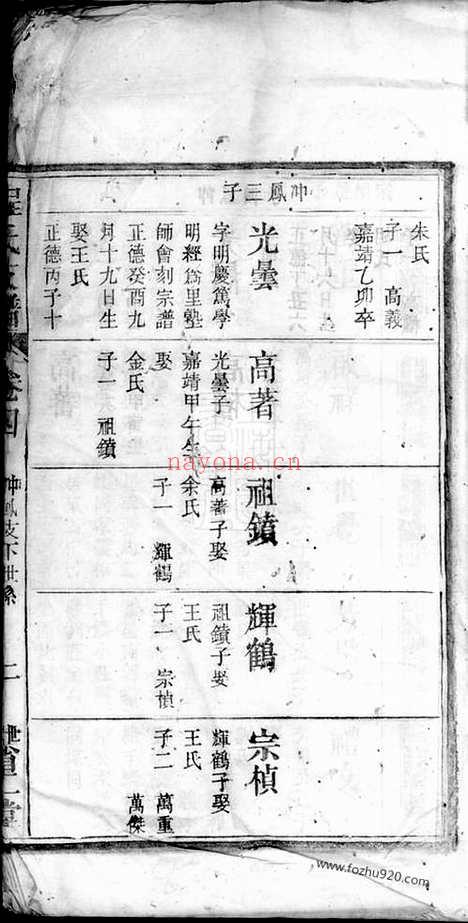 冲鳳三子
朱氏
子一 高義
嘉靖乙卯卒
光曇
字明慶篤學
明經爲里塾
師會刻宗譜
正德癸酉九
月十九日生
娶王氏
正德丙子十
高著
光曇子
嘉靖甲午生
娶
金氏
子一 祖鐼
祖鐼
高著子娶
余氏
子一 輝鶴
輝鶴
祖鐼子娶
王氏
子一 宗楨
宗楨
輝鶴子娶
王氏
子二 萬重
萬傑
卷四
冲鳳支下世系
二
nayona.cn
www.fozhu920.com